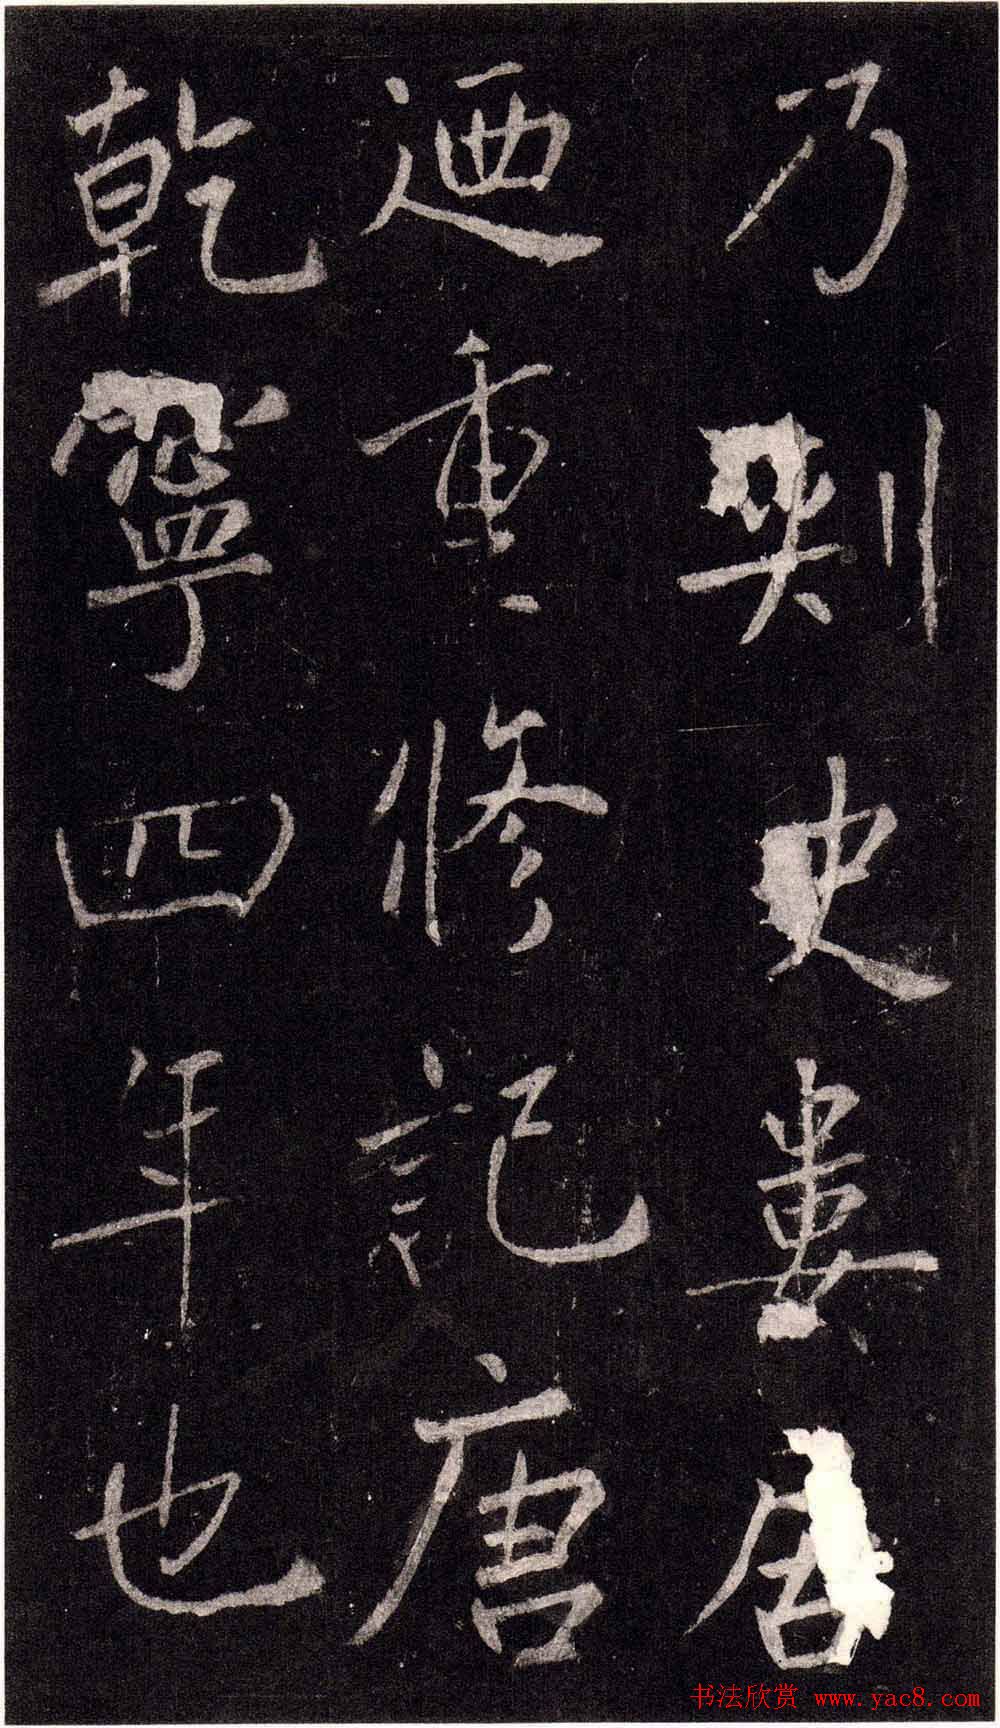 乃刺史婁
迺重修記唐
乾寧四年也
书法欣赏 www.yac8.com